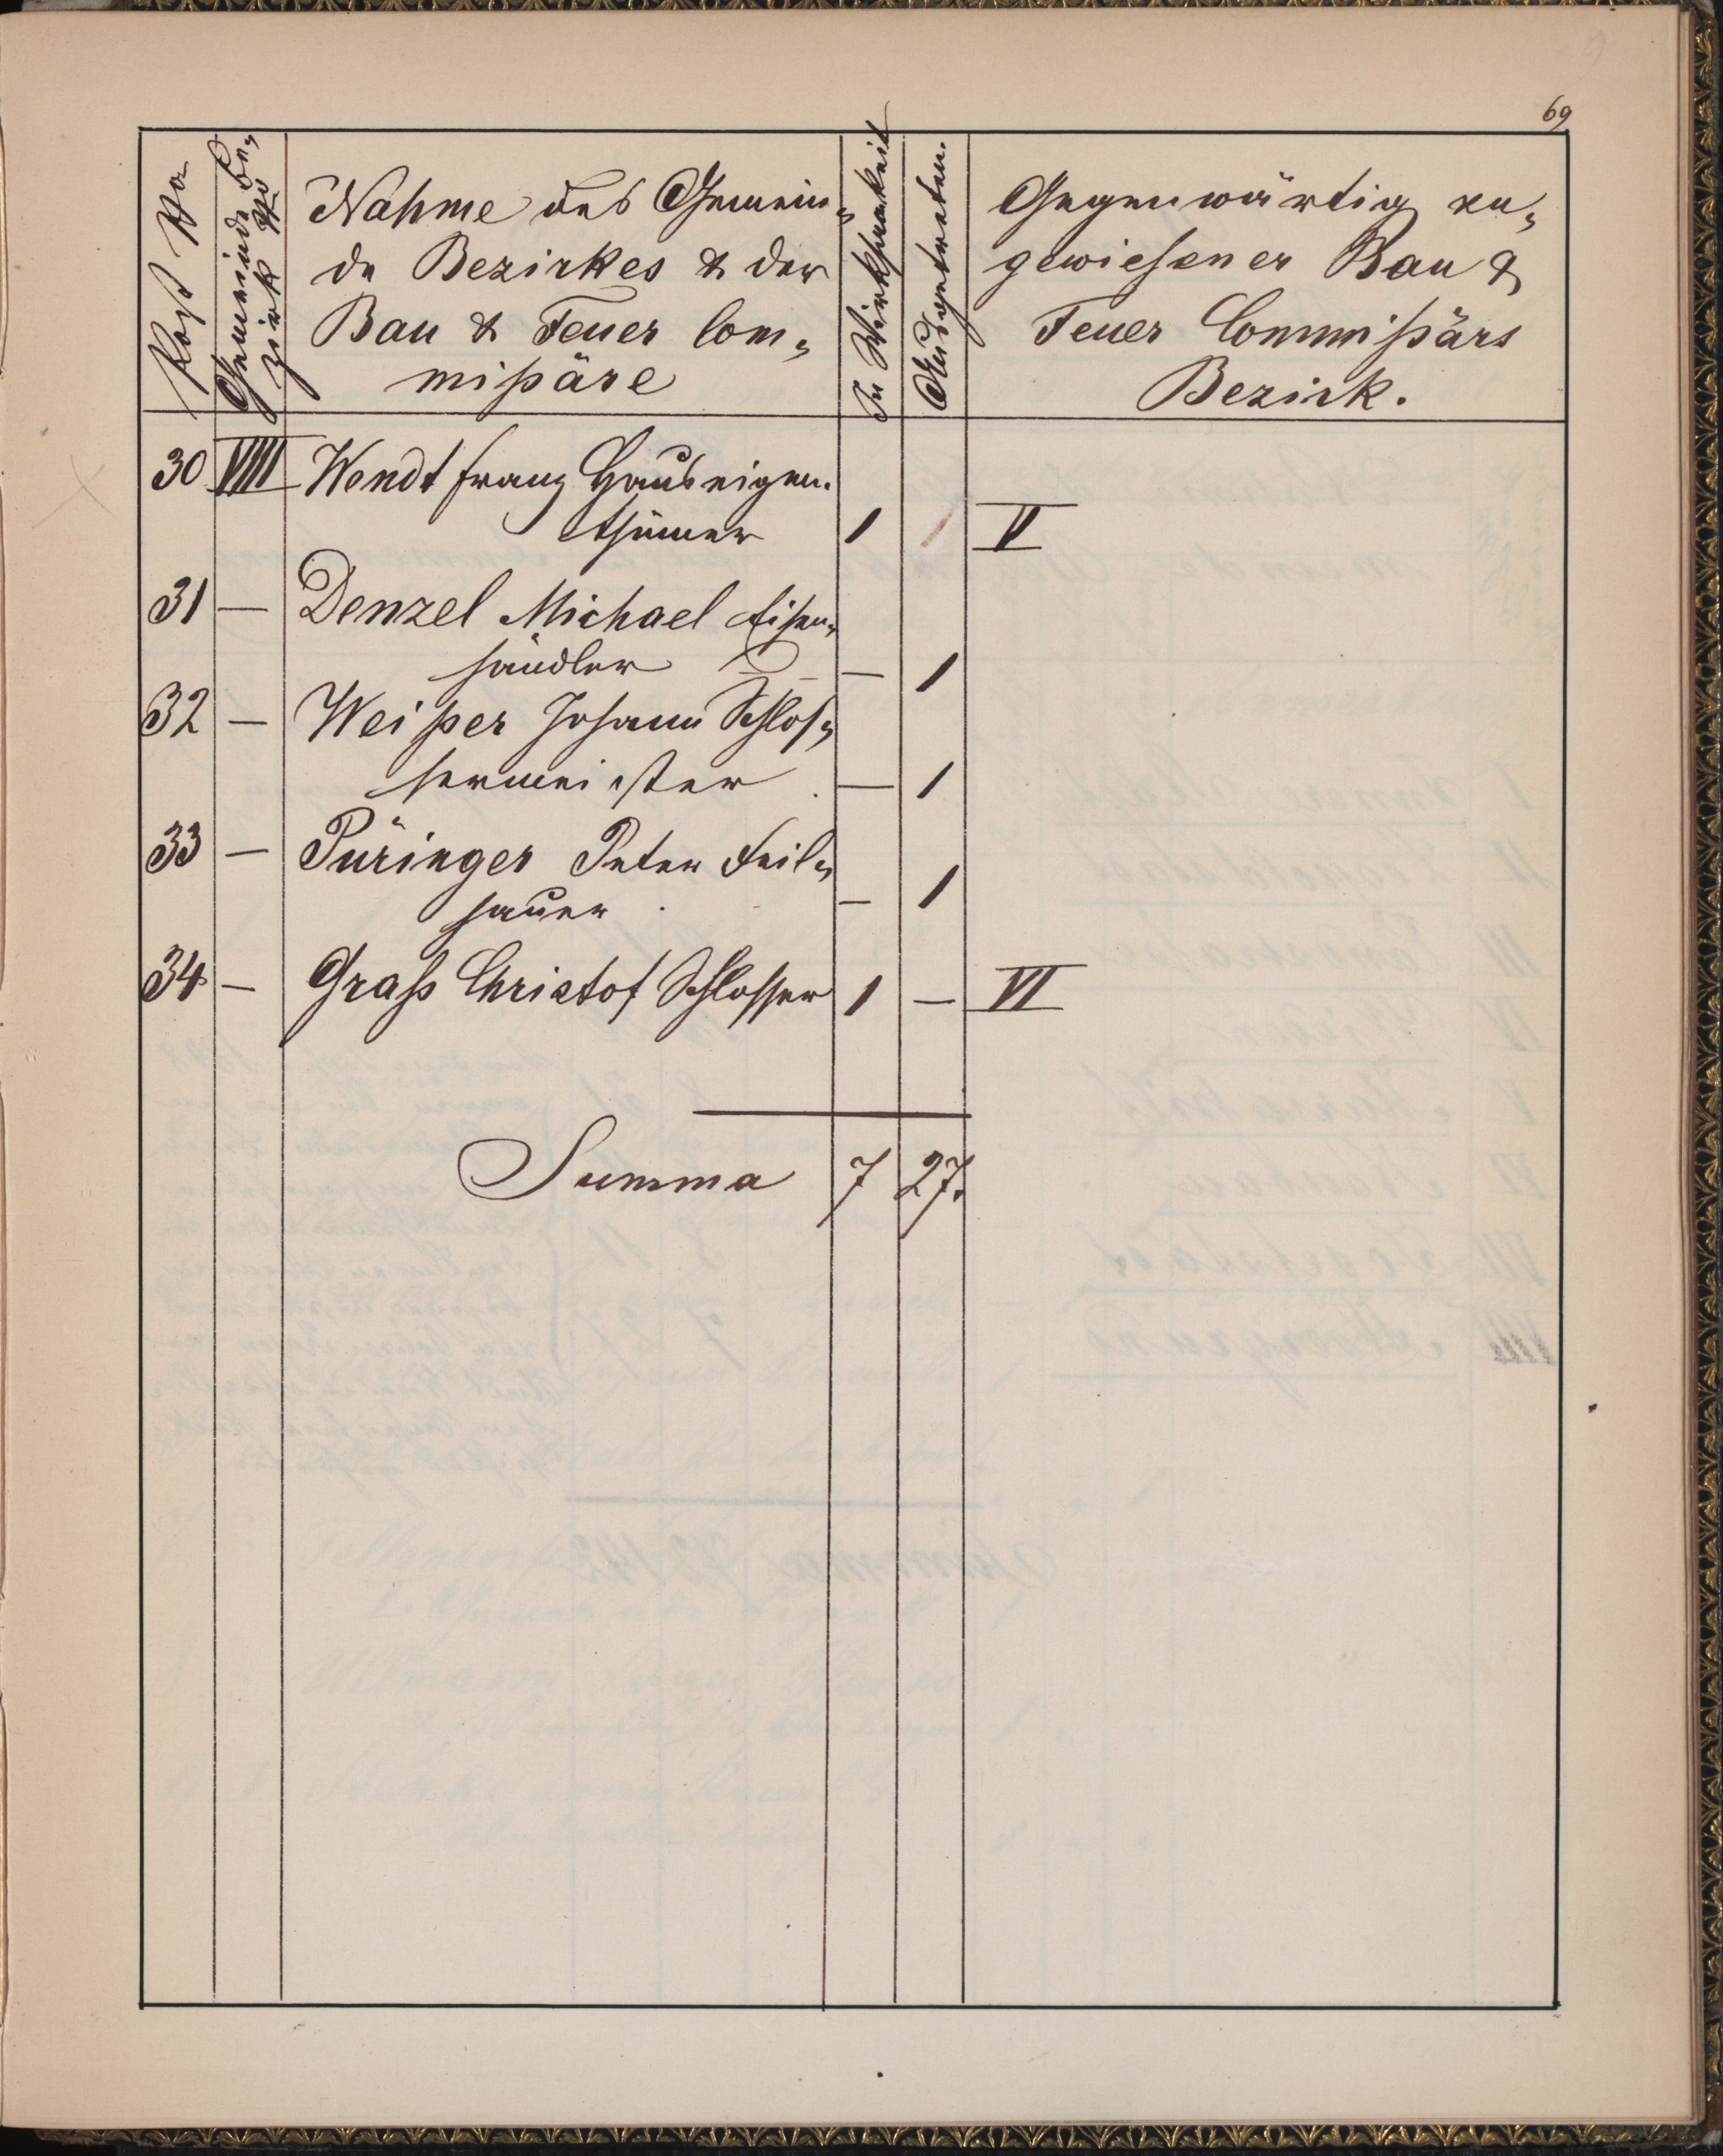 69
Post No
Gemeinde Be„
zirk No
Nahme des Gemein„
de Bezirkes & der
Bau & Feuer Com„
mißäre
In Wirksamkeit
Ausgetreten.
Gegenwärtig zu„
gewiesener Bau &
Feuer Commißärs
Bezirk.
30 VIII Wendt Franz Hauseigen„
thümer 1 1 V
31 — Denzel Michael Eisen„
händler — 1
32 — Weißer Johann Schlos„
sermeister — 1
33 — Püringer Peter Feil„
hauer — 1
34 — Graß Christof Schlosser 1 — VI
Summa 7 27.